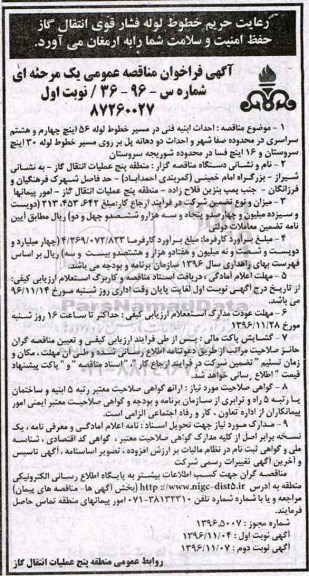 رعایت حریم خطوط لوله فشار قوی انتقال گاز
حفظ امنیت و سلامت شما را به ارمغان می آورد.
آگهی فراخوان مناقصه عمومی یک مرحله ای
شماره س - ۹۶ - ۳۶ / نوبت اول
۸۷۲۶۰۰۲۷
۱ - موضوع مناقصه : احداث ابنیه فنی در مسیر خطوط لوله ۵۶ اینچ چهارم و هشتم
سراسری در محدوده صفا شهر و احداث دو دهانه پل بر روی مسیر خطوط لوله ۳۰ اینچ
سروستان و ۱۶ اینچ فسا در محدوده شوریجه سروستان
۲ - نام و نشانی دستگاه مناقصه گزار : منطقه پنج عملیات انتقال گاز - به نشانی
شیراز - بزرگراه امام خمینی (کمربندی احمدآباد) - حد فاصل شهرک فرهنگیان و
فرزانگان - جنب پمپ بنزین فلاح زاده - منطقه پنج عملیات انتقال گاز - امور پیمانها
۳ - میزان و نوع تضمین شرکت در فرایند ارجاع کار: مبلغ ۲۱۳.۴۵۳.۶۴۲ (دویست
و سیزده میلیون و چهارصد و پنجاه و سه هزار و ششصد و چهل و دو) ریال مطابق آیین
نامه تضمین معاملات دولتی
۴ - مبلغ برآورد کارفرما: مبلغ برآورد کارفرما ۴/۲۶۹/۰۷۲/۸۲۳ (چهار میلیارد و
دویست و شصت و نه میلیون و هفتاد و هزار و هشتصد و بیست و سه) ریال بر اساس
فهرست بهای راهداری سال ۱۳۹۶ سازمان برنامه و بودجه می باشد.
۵ - مهلت اعلام آمادگی، دریافت اسناد مناقصه و کاربرگ استعلام ارزیابی کیفی:
از تاریخ درج آگهی نوبت اول لغایت پایان وقت اداری روز شنبه مورخ ۹۶/۱۱/۱۴
می باشد.
۶ - مهلت عودت مدارک استعلام ارزیابی کیفی : حداکثر تا ساعت ۱۶ روز شنبه
مورخ ۱۳۹۶/۱۱/۲۸
۷ - گشایش پاکت مالی : پس از طی فرایند ارزیابی کیفی و تعیین مناقصه گران
حائز صلاحیت مراتب از طریق دعوتنامه اطلاع رسانی شده و طی آن مهلت، مکان و
زمان تسلیم " تضمین شرکت در فرایند ارجاع کار"، " اسناد مناقصه " و " پاکت پیشنهاد
قیمت " اطلاع رسانی خواهد شد.
۸ - گواهی صلاحیت مورد نیاز : ارائه گواهی صلاحیت معتبر رتبه ۵ ابنیه و ساختمان
یا رتبه ۵ راه و ترابری از سازمان برنامه و بودجه و گواهی صلاحیت معتبر ایمنی امور
پیمانکاران از اداره تعاون ، کار و رفاه اجتماعی الزامی است.
۹ - مدارک مورد نیاز جهت تحویل اسناد : نامه اعلام آمادگی و معرفی نامه ، یک
نسخه برابر اصل از کلیه مدارک گواهی صلاحیت معتبر ، گواهی کد اقتصادی ، شناسه
ملی و گواهی ثبت نام در نظام مالیات بر ارزش افزوده ، تصویر اساسنامه ، آگهی تاسیس
و آخرین آگهی تغییرات رسمی شرکت
مناقصه گران جهت کسب اطلاعات بیشتر به پایگاه اطلاع رسانی الکترونیکی
منطقه به آدرس http://www.nigc-dist5.ir (بخش آگهی ها- مناقصه های پیمان)
مراجعه و یا با شماره شماره تلفن ۳۸۱۳۲۳۱۰-۰۷۱ امور پیمانهای منطقه تماس حاصل
فرمایند.
شماره مجوز : ۱۳۹۶.۵۰۰۷
آگهی نوبت اول : ۱۳۹۶/۱۱/۰۴
آگهی نوبت دوم : ۱۳۹۶/۱۱/۰۷
روابط عمومی منطقه پنج عملیات انتقال گاز